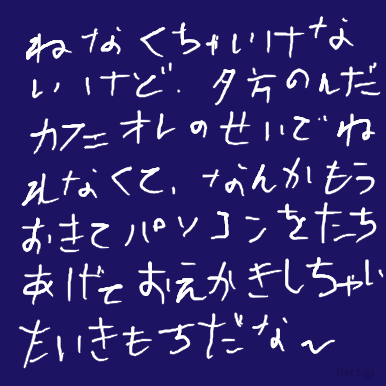 ねなくちゃいけな
いけど、夕方のんだ
カフェオレのせいでね
れなくて、なんかもう
おきてパソコンをたち
あげておえかきしちゃい
たいきもちだな〜